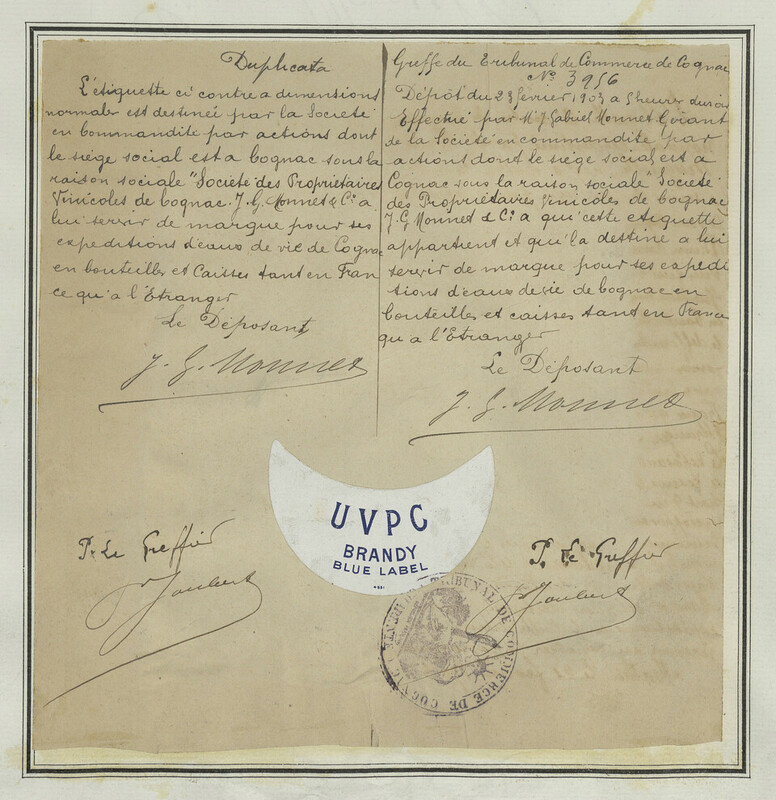 Duplicata
L'étiquette ci contre a dimensions
normales est destinée par la Societé
en Commandite par actions dont
le siège social est a Cognac sous la
raison sociale "Societé des Propriétaires
Vinicoles de Cognac J. G. Monnet & Cie a
lui servir de marque pour ses
expeditions d'eaux de vie de Cognac
en bouteilles et Caisses tant en Fran
ce qu'a l'Etranger
Le Déposant
J. G. Monnet
P. Le Greffier
Joubert
Greffe du Tribunal de Commerce de Cognac
No 3956
Dépôt du 23 février 1903 a 5 heures du soir
Effectué par Mr J. Gabriel Monnet Gérant
de la Societé en commandite par
actions dont le siège social est a
Cognac sous la raison sociale "Societé
des Propriétaires Vinicoles de Cognac
J. G. Monnet & Cie a qui cette etiquette
appartient et qui la destine a lui
servir de marque pour ses expedi
tions d'eaux de vie de Cognac en
bouteilles et caisses tant en France
qu'a l'Etranger
Le Déposant
J. G. Monnet
UVPC
BRANDY
BLUE LABEL
P. Le Greffier
Joubert
TRIBUNAL DE COMMERCE DE COGNAC